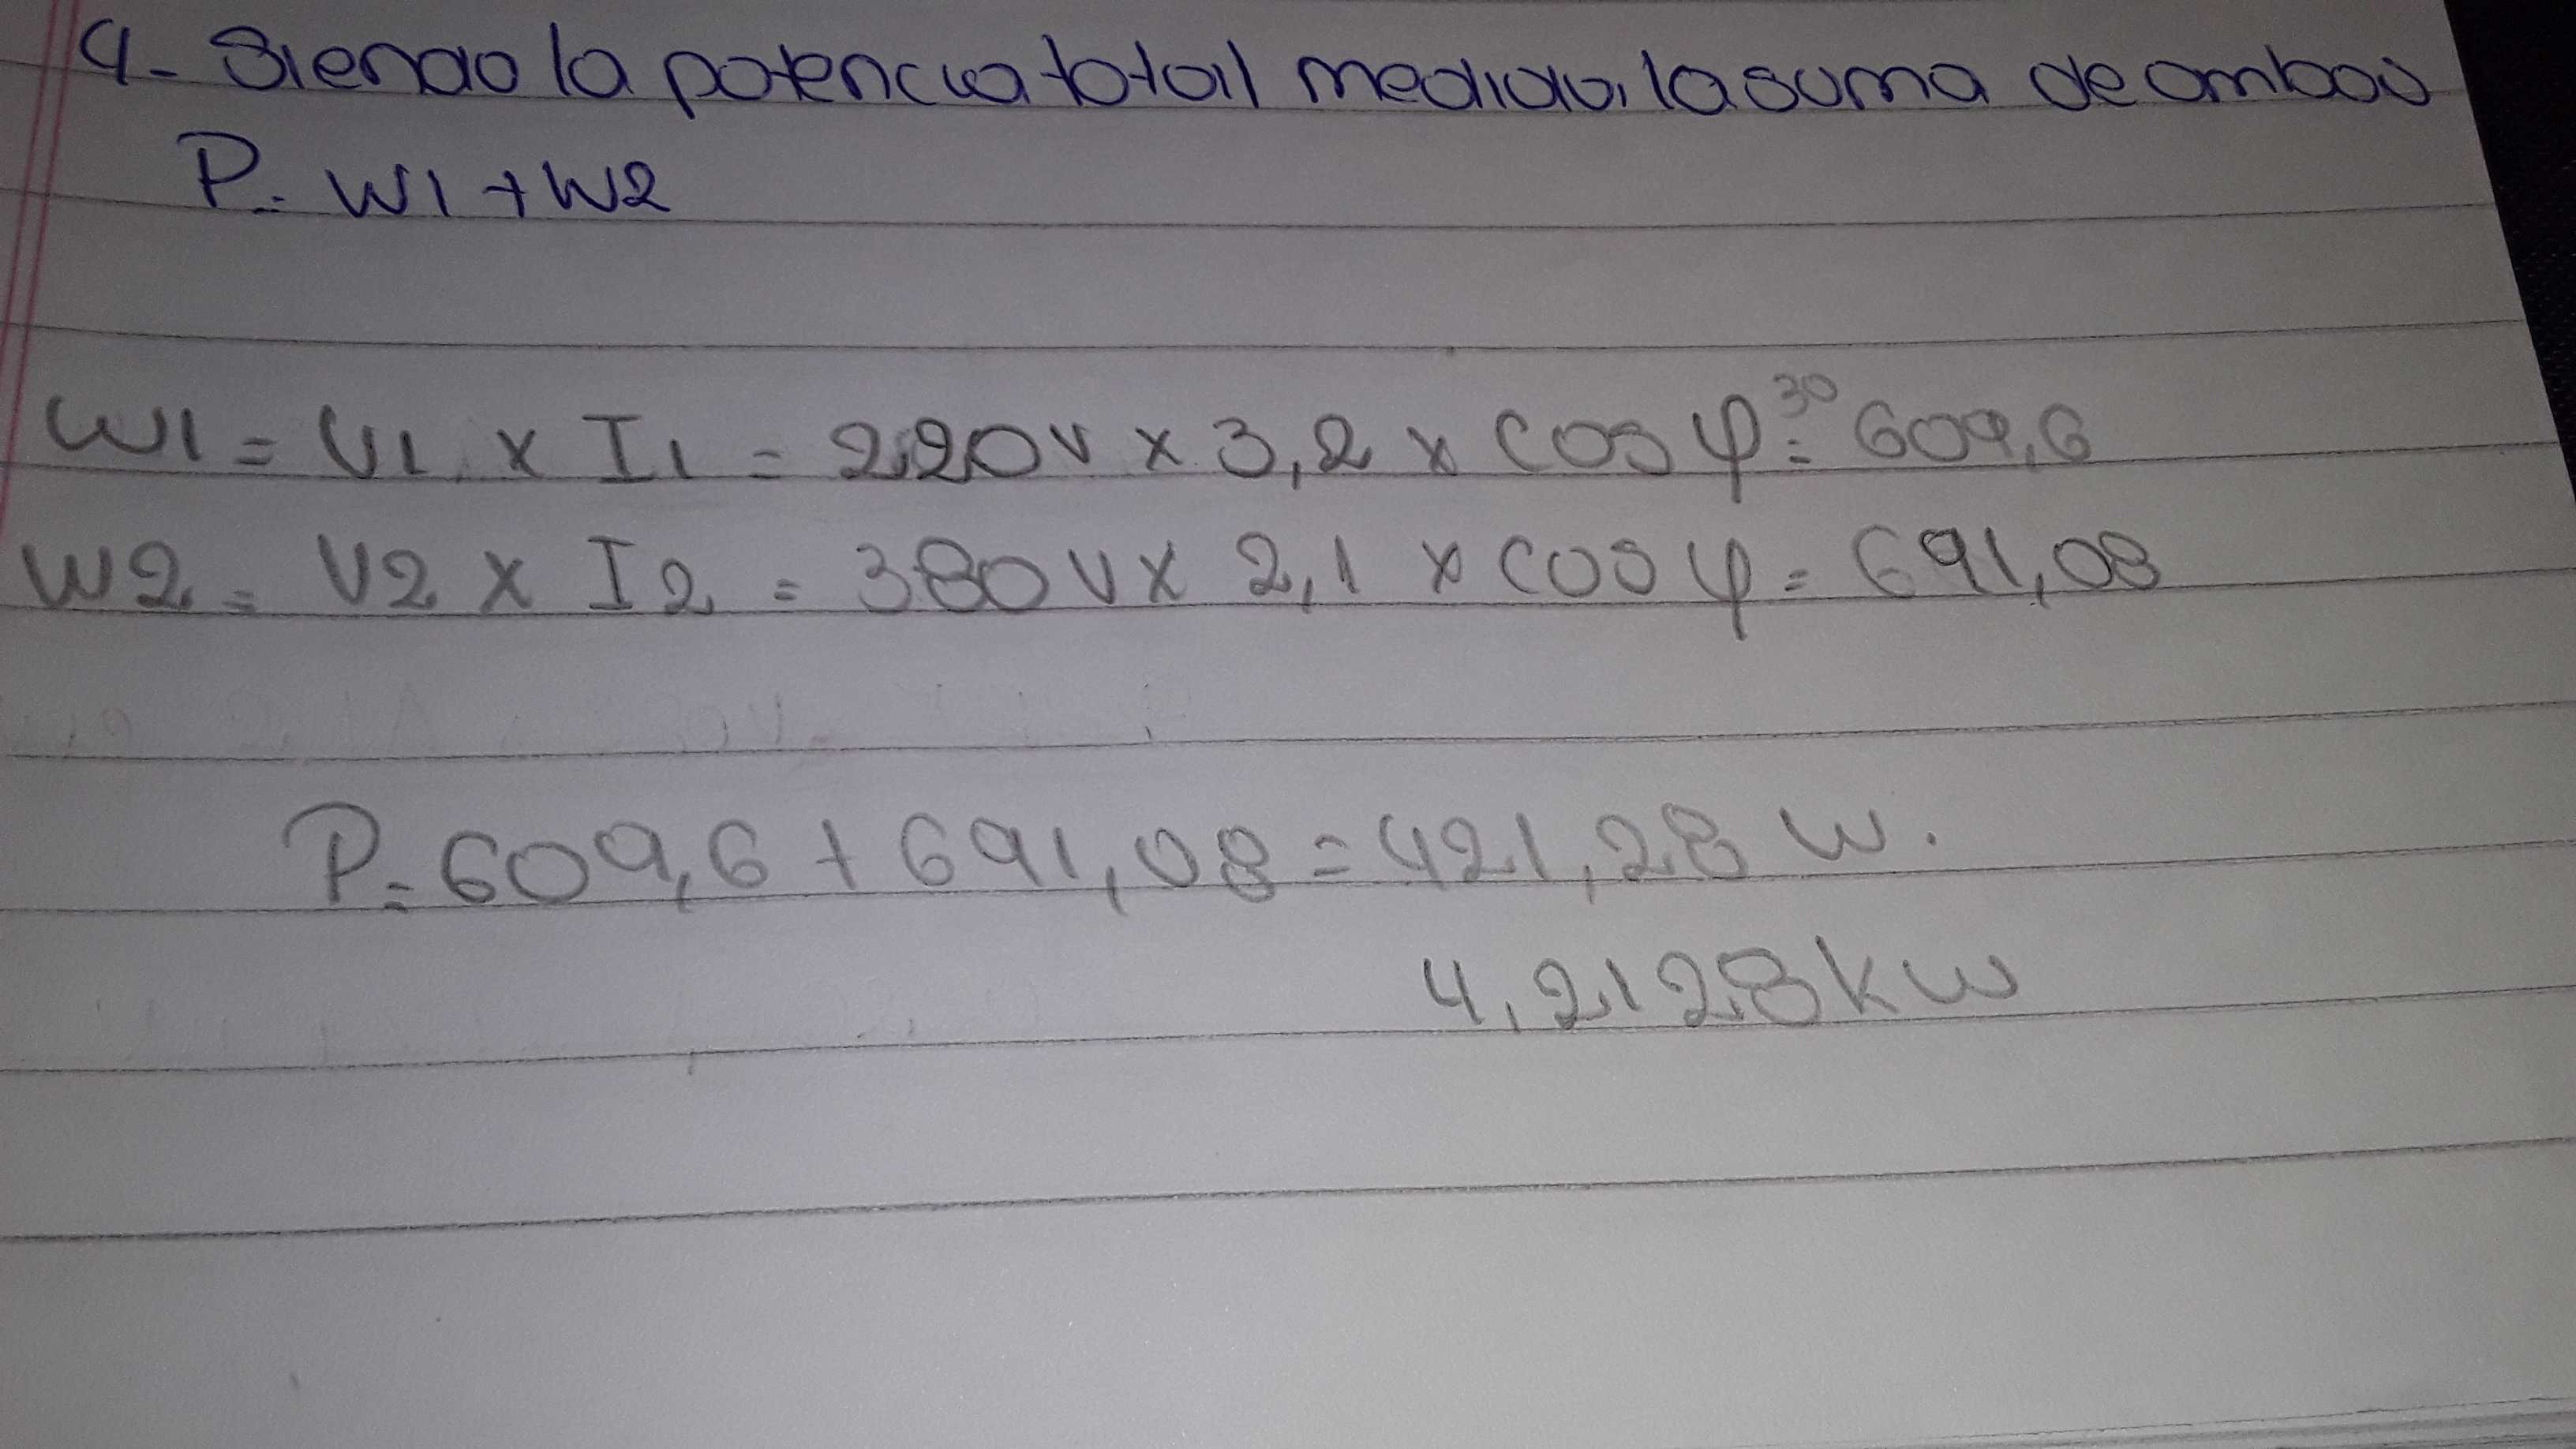 4- Siendo la potencia total medida, la suma de ambas
P= W1 + W2
W1 = V1 x I1 = 220V x 3,2 x cos φ 30 = 609,6
W2 = V2 x I2 = 380V x 2,1 x cos φ = 691,08
P= 609,6 + 691,08 = 421,28 W.
4,2128 kW